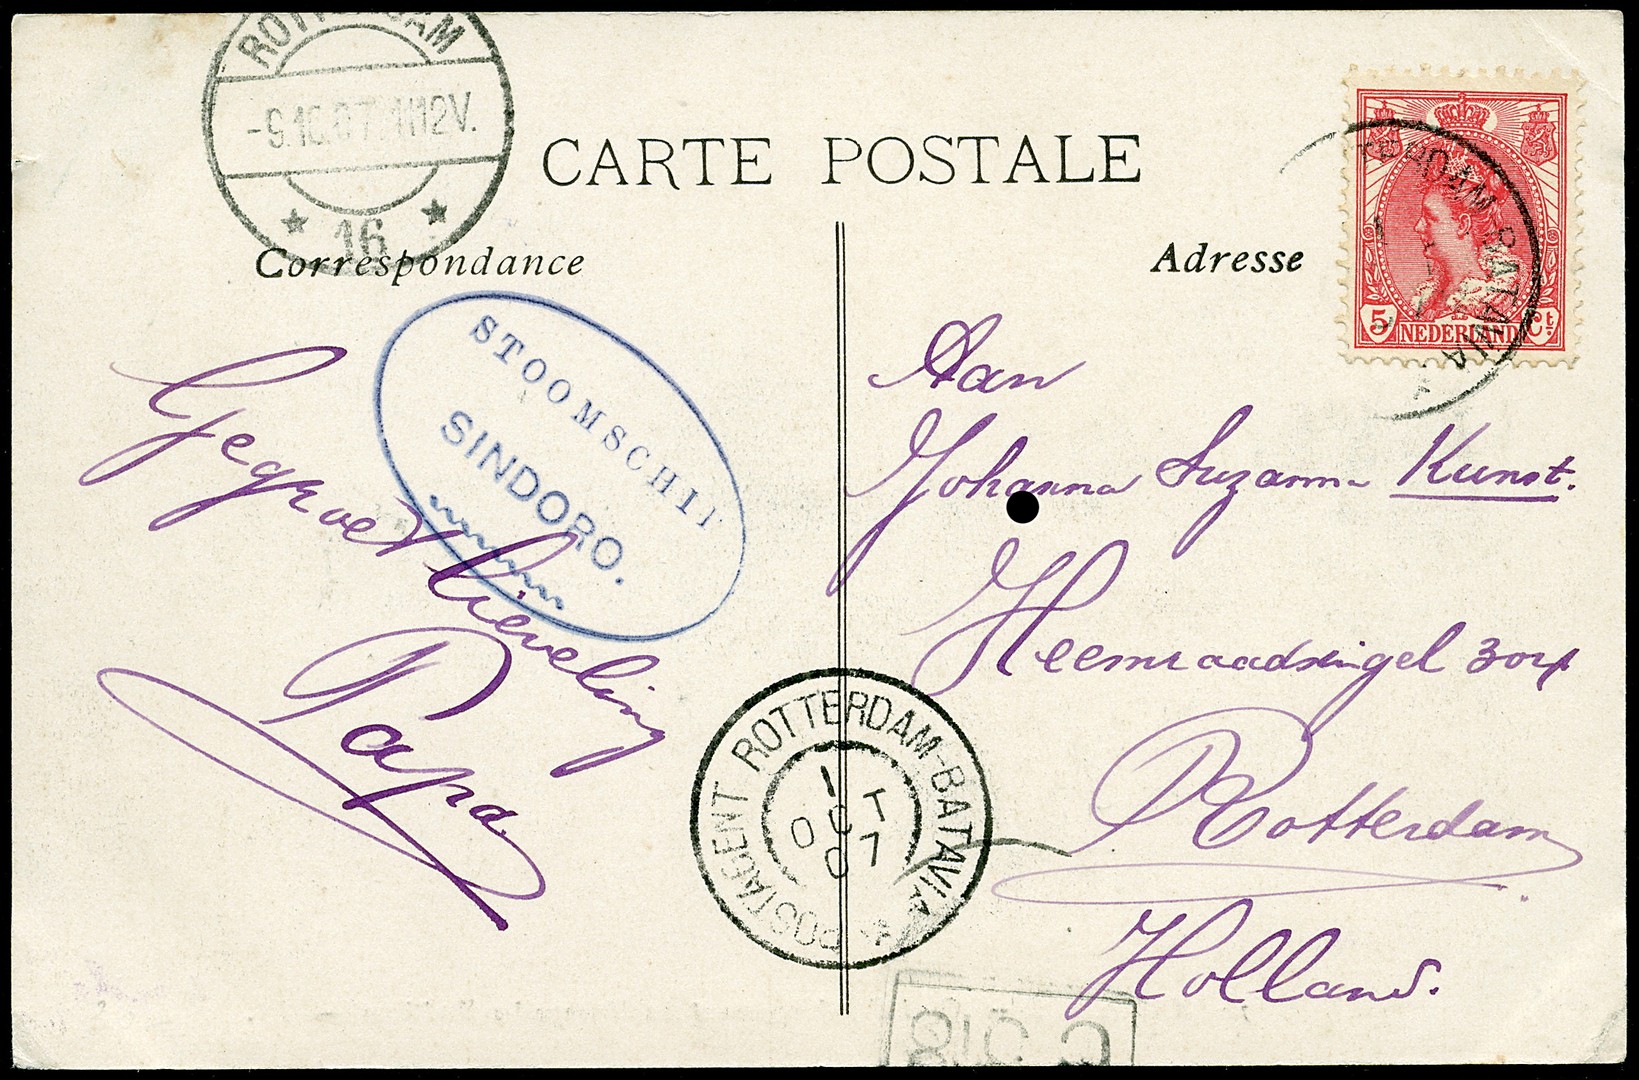 ROTTERDAM
-9.10.07.11-12V.
16
CARTE POSTALE
Correspondance
Adresse
STOOMSCHIP
SINDORO.
Gegroet lieveling
Papa
5 NEDERLAND Ct.
ROTTERDAM-BATAVIA
Aan
Johanna Suzanna Kunst.
Heemraadsingel
Rotterdam
Holland.
POSTAGENT ROTTERDAM-BATAVIA
1 OCT 07